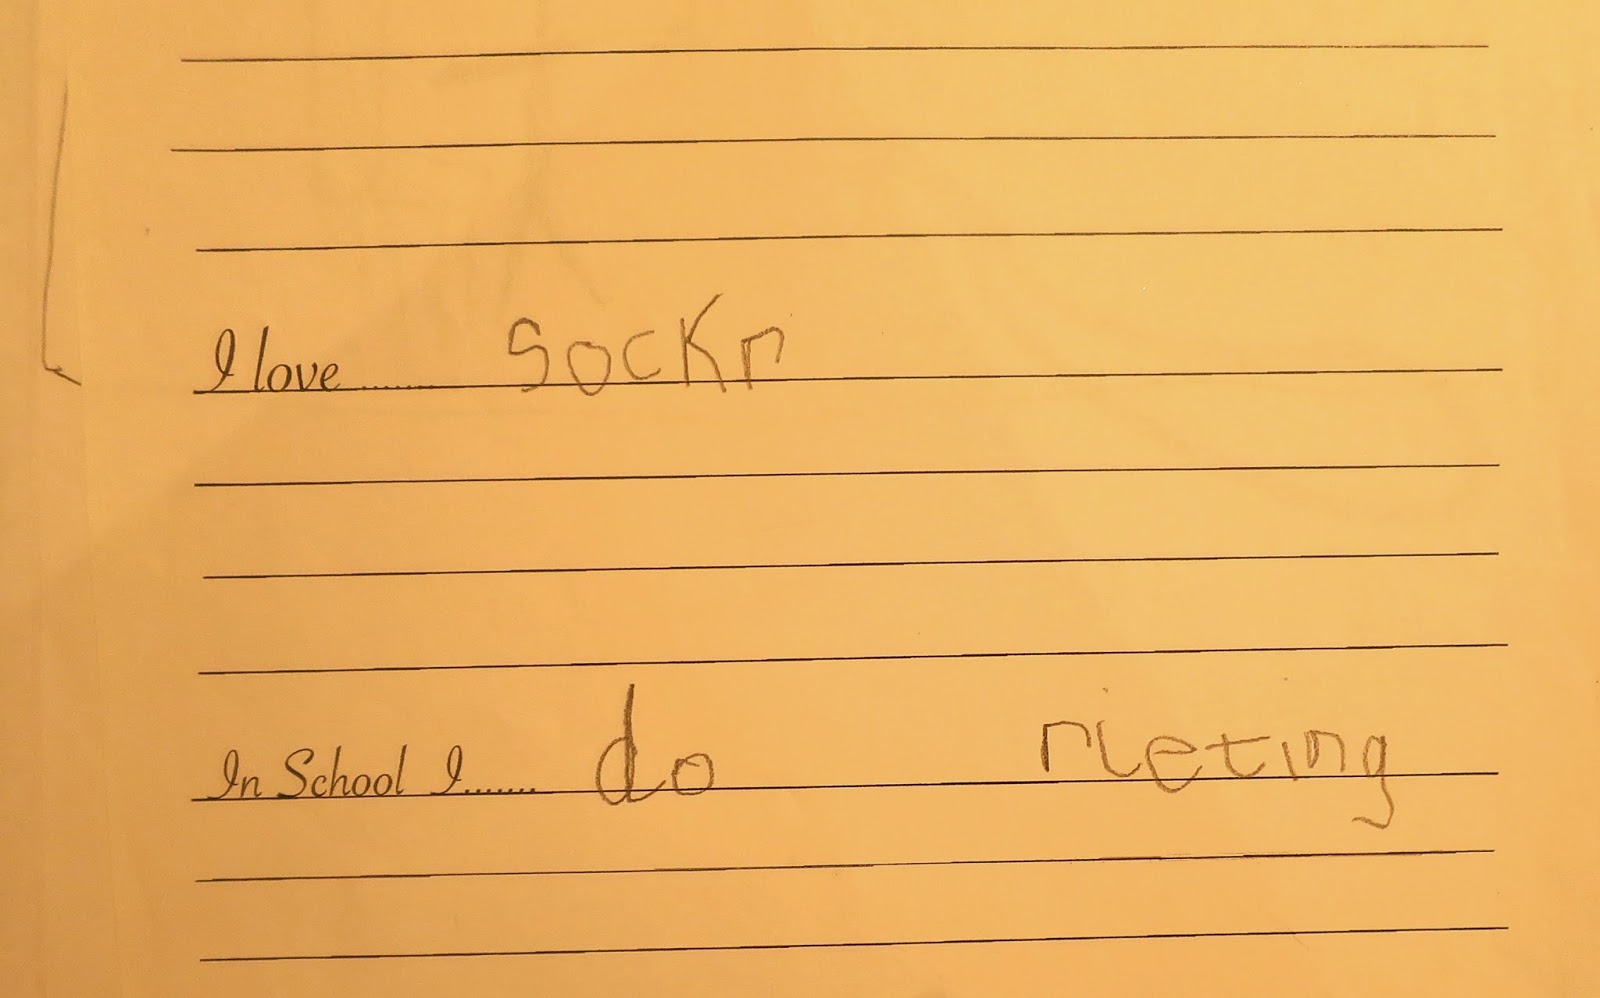 I love........ sockr
In School I....... do rieting